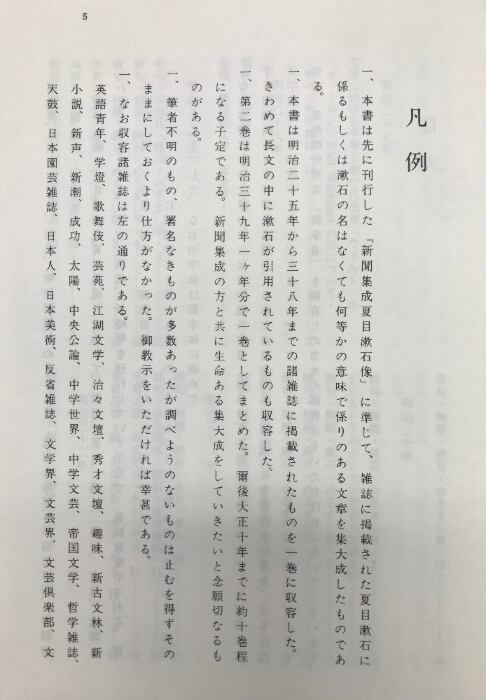 5
凡例
一、本書は先に刊行した「新聞集成夏目漱石像」に準じて、雑誌に掲載された夏目漱石に
係るもしくは漱石の名はなくても何等かの意味で係りのある文章を集大成したものであ
る。
一、本書は明治二十五年から三十八年までの諸雑誌に掲載されたものを一巻に収容した。
きわめて長文の中に漱石が引用されているものも収容した。
一、第二巻は明治三十九年一ヶ年分で一巻としてまとめた。爾後大正十年までに約十巻程
になる子定である。新聞集成の方と共に生命ある集大成をしていきたいと念願切なるも
のがある。
一、筆者不明のもの、署名なきものが多数あったが調べようのないものは止むを得ずその
ままにしておくより仕方がなかった。御教示をいただければ幸甚である。
一、なお収容諸雑誌は左の通りである。
英語青年、学燈、歌舞伎、芸苑、江湖文学、治々文壇、秀才文壇、趣味、新古文林、新
小説、新声、新潮、成功、太陽、中央公論、中学世界、中学文芸、帝国文学、哲学雑誌、
天鼓、日本園芸雑誌、日本人、日本美術、反省雑誌、文学界、文芸界、文芸倶楽部、文